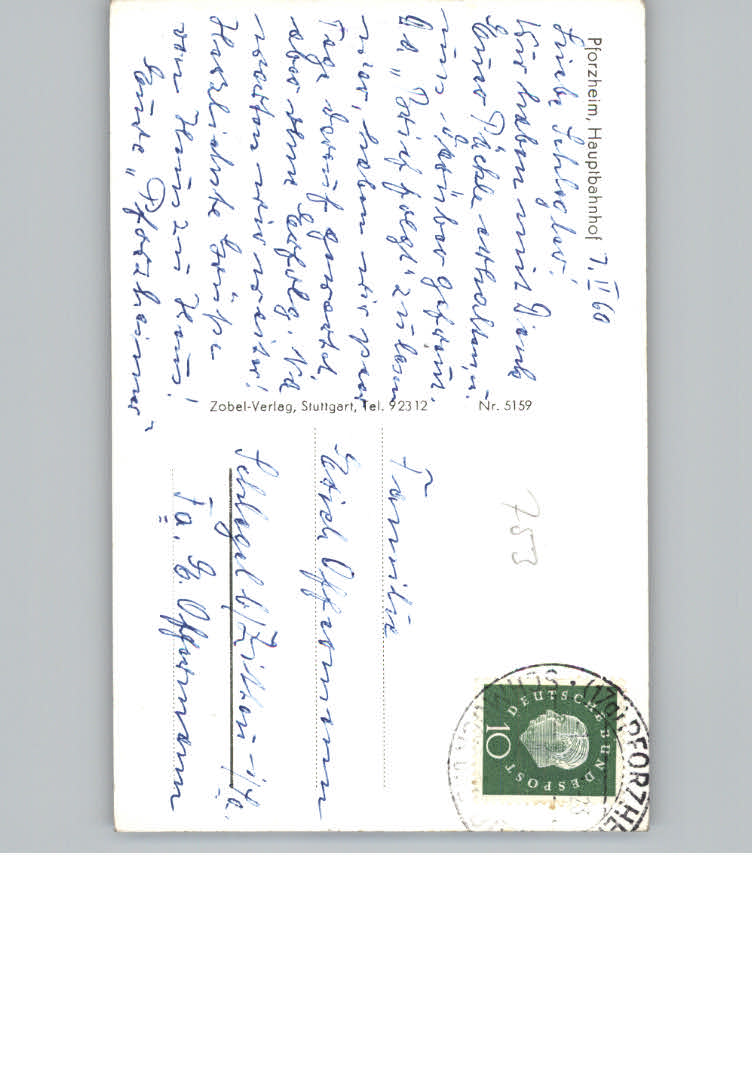 Pforzheim, Hauptbahnhof
7. II 60
Liebe Schlegler!
Wir haben mit Dank
Euer Päckle erhalten u.
uns darüber gefreut.
Da „Brief folgt" zu lesen
war, haben wir paar
Tage darauf gewartet,
aber ohne Erfolg. Na
warten wir weiter!
Herzlichste Grüße
von Haus zu Haus!
Eure „Pforzheimer"
Zobel-Verlag, Stuttgart, Tel. 92312 Nr. 5159
753
Familie
Erich Offermann
Schlegel b/Zittau i/Sa.
Fa. G. Offermann
DEUTSCHE BUNDESPOST
10
(17a) PFORZHE